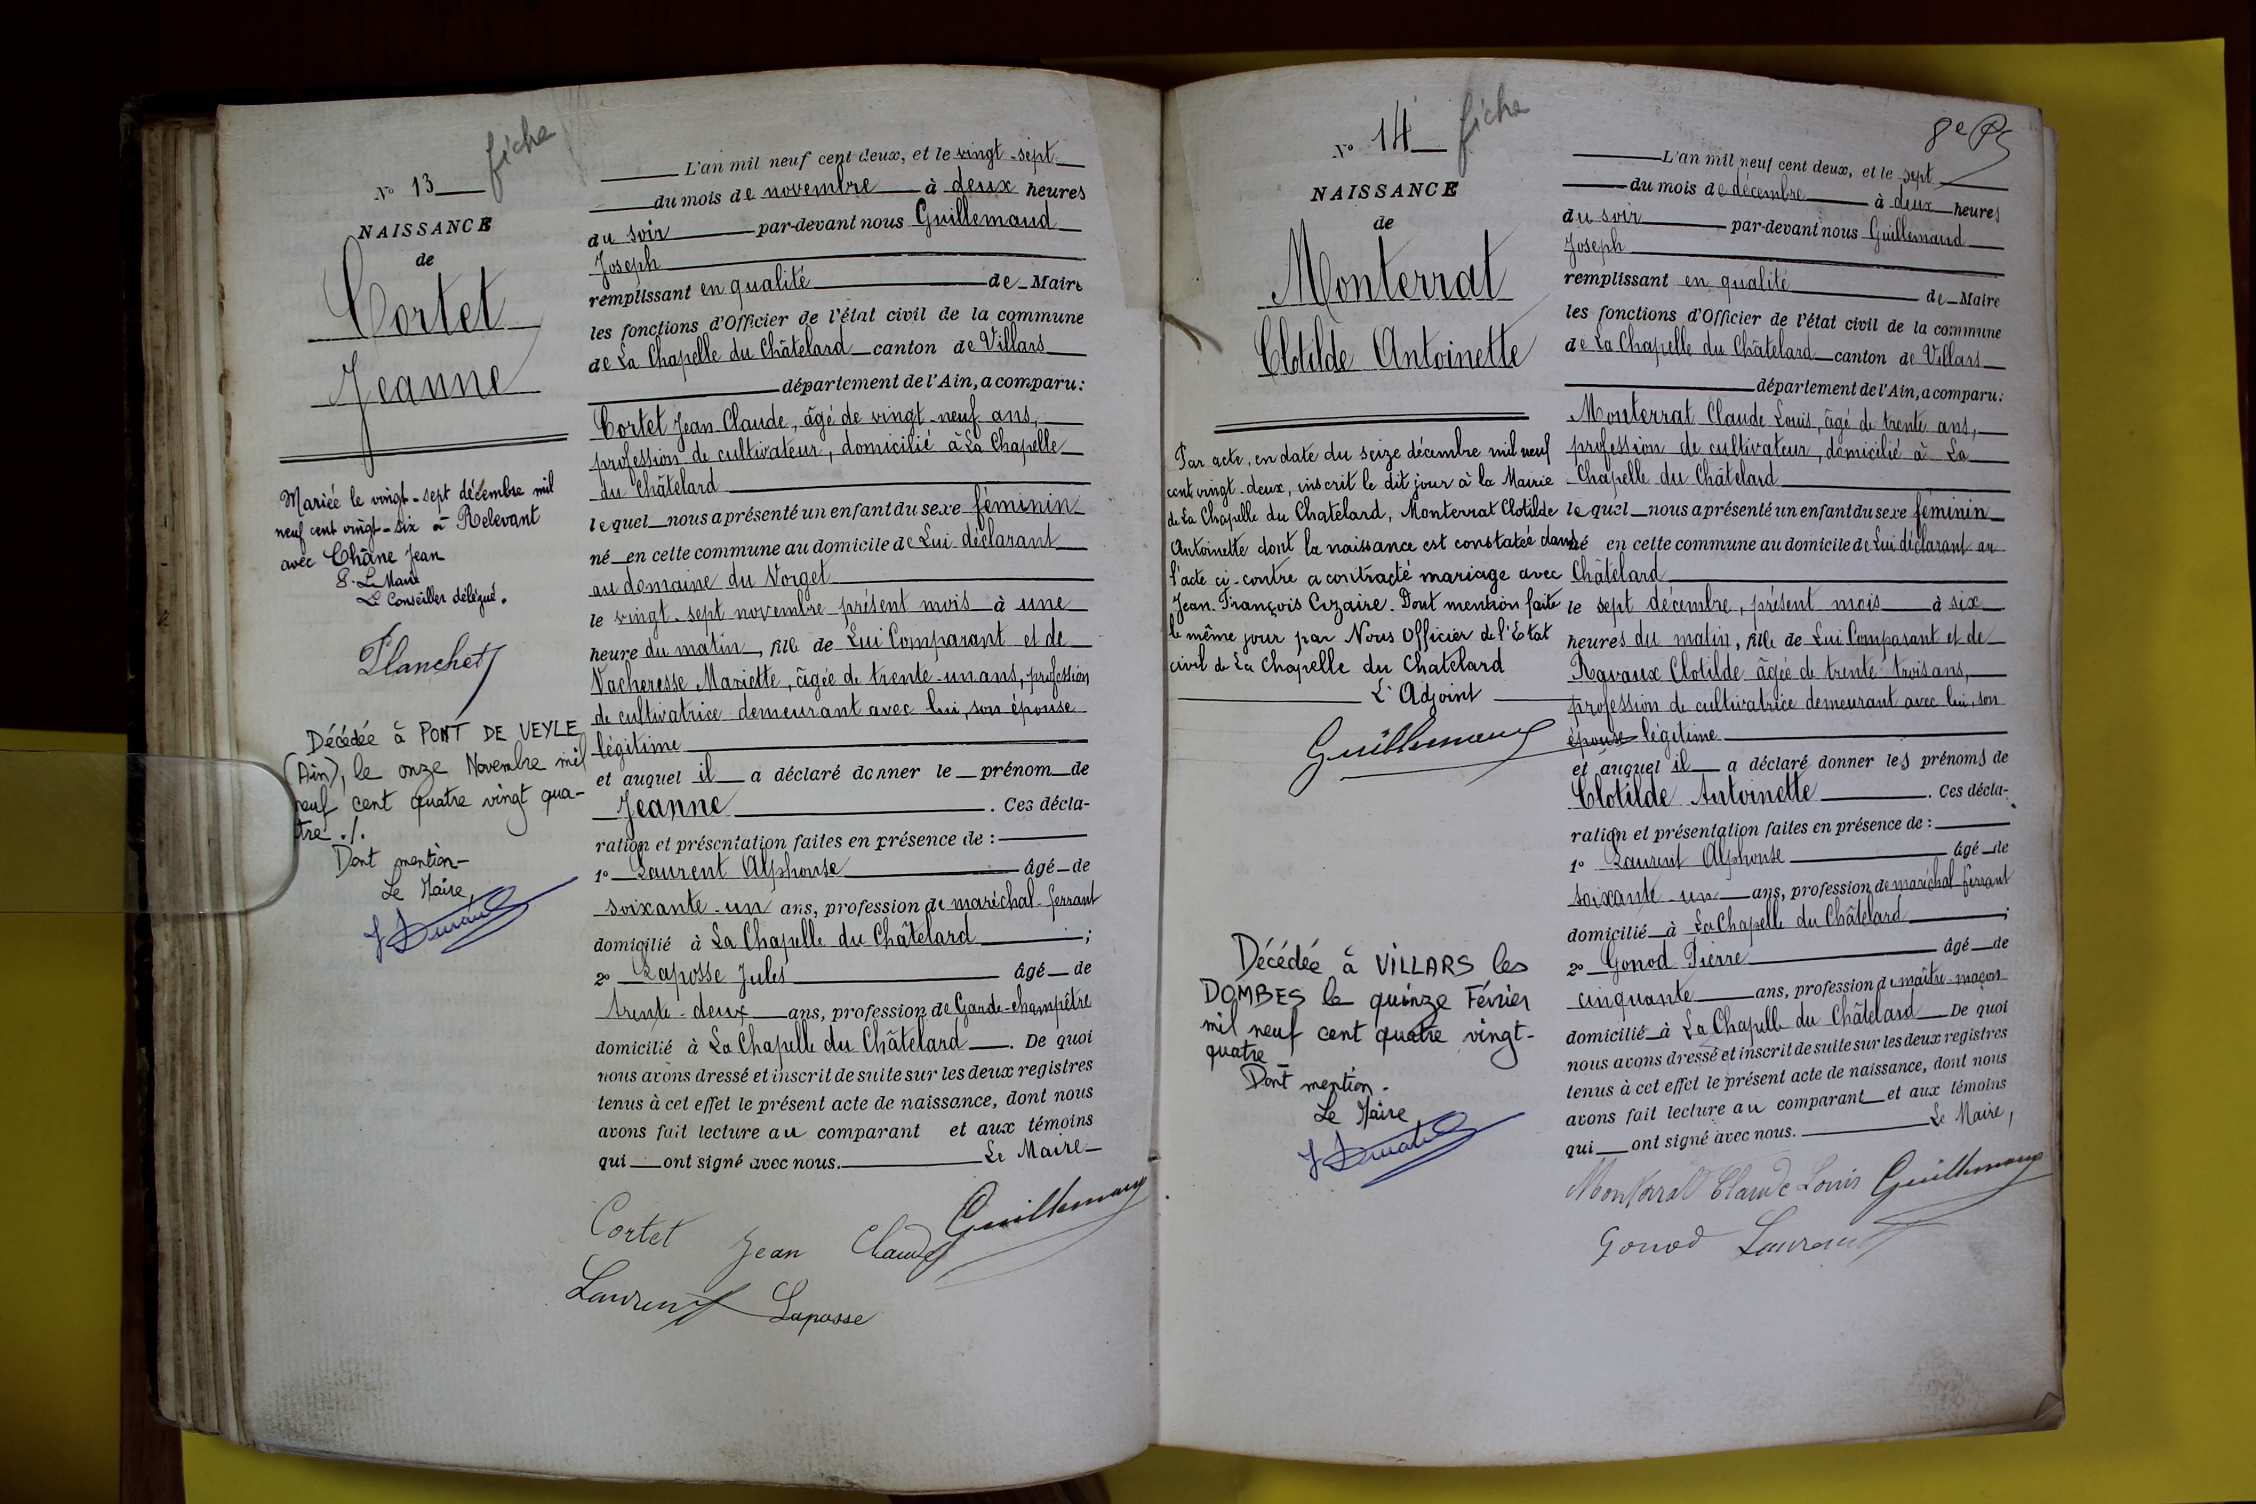 fiche
N° 13
NAISSANCE
de
Cortet
Jeanne
Mariée le vingt-sept décembre mil
neuf cent vingt-six à Relevant
avec Châne Jean
P. Le Maire
Le Conseiller délégué.
Planchet
Décédée à PONT DE VEYLE
(Ain), le onze Novembre mil
neuf cent quatre vingt qua-
tre ./.
Dont mention-
Le Maire,
L'an mil neuf cent deux, et le vingt-sept
du mois de novembre à deux heures
du soir par-devant nous Guillemaud
Joseph
remplissant en qualité de Maire
les fonctions d'Officier de l'état civil de la commune
de La Chapelle du Châtelard canton de Villars
département de l'Ain, a comparu:
Cortet Jean Claude, âgé de vingt-neuf ans,
profession de cultivateur, domicilié à La Chapelle
du Châtelard
lequel nous a présenté un enfant du sexe féminin
né en cette commune au domicile de Lui déclarant
au domaine du Vorget
le vingt-sept novembre présent mois à une
heure du matin, fille de Lui Comparant et de
Vacheresse Mariette, âgée de trente-un ans, profession
de cultivatrice demeurant avec lui, son épouse
légitime
et auquel il a déclaré donner le prénom de
Jeanne. Ces décla-
ration et présentation faites en présence de :
1° Laurent Alphonse âgé de
soixante-un ans, profession de maréchal-ferrant
domicilié à La Chapelle du Châtelard ;
2° Laposse Jules âgé de
trente-deux ans, profession de Garde-champêtre
domicilié à La Chapelle du Châtelard. De quoi
nous avons dressé et inscrit de suite sur les deux registres
tenus à cet effet le présent acte de naissance, dont nous
avons fait lecture au comparant et aux témoins
qui ont signé avec nous. Le Maire
Cortet Jean Claude Guillemaud
Laurent Laposse
N° 14 fiche
NAISSANCE
de
Monterrat
Clotilde Antoinette
Par acte, en date du seize décembre mil neuf
cent vingt-deux, inscrit le dit jour à la Mairie
de La Chapelle du Chatelard, Monterrat Clotilde
Antoinette dont la naissance est constatée dans
l'acte ci-contre a contracté mariage avec
Jean-François Cizaire. Dont mention faite
le même jour par Nous Officier de l'Etat
civil de La Chapelle du Chatelard
L'Adjoint
Guillemaud
Décédée à VILLARS les
DOMBES le quinze Février
mil neuf cent quatre vingt-
quatre
Dont mention-
Le Maire
8e
L'an mil neuf cent deux, et le sept
du mois de décembre à deux heures
du soir par-devant nous Guillemaud
Joseph
remplissant en qualité de Maire
les fonctions d'Officier de l'état civil de la commune
de La Chapelle du Châtelard canton de Villars
département de l'Ain, a comparu:
Monterrat Claude Louis, âgé de trente ans,
profession de cultivateur, domicilié à La
Chapelle du Châtelard
lequel nous a présenté un enfant du sexe féminin
né en cette commune au domicile de Lui déclarant au
Châtelard
le sept décembre, présent mois à six
heures du matin, fille de Lui Comparant et de
Ravaux Clotilde âgée de trente-trois ans,
profession de cultivatrice demeurant avec lui, son
épouse légitime
et auquel il a déclaré donner les prénoms de
Clotilde Antoinette. Ces décla-
ration et présentation faites en présence de :
1° Laurent Alphonse âgé de
soixante-un ans, profession de maréchal-ferrant
domicilié à La Chapelle du Châtelard ;
2° Gonod Pierre âgé de
cinquante ans, profession de maître-maçon
domicilié à La Chapelle du Châtelard De quoi
nous avons dressé et inscrit de suite sur les deux registres
tenus à cet effet le présent acte de naissance, dont nous
avons fait lecture au comparant et aux témoins
qui ont signé avec nous. Le Maire,
Monterrat Claude Louis Guillemaud
Gonod Laurent